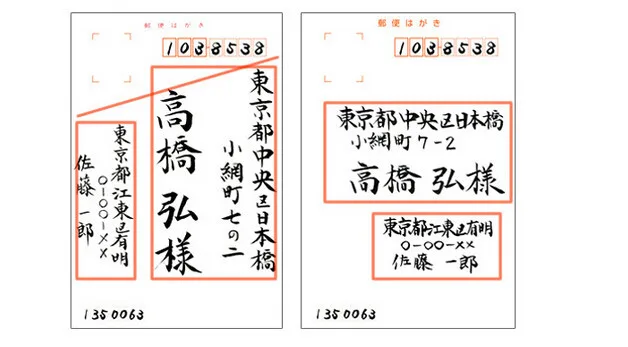 郵便はがき
1038538
東京都中央区日本橋
小網町七の二
高橋 弘様
東京都江東区有明
○-○○-××
佐藤 一郎
1350063
郵便はがき
1038538
東京都中央区日本橋
小網町7-2
高橋 弘様
東京都江東区有明
○-○○-××
佐藤 一郎
1350063